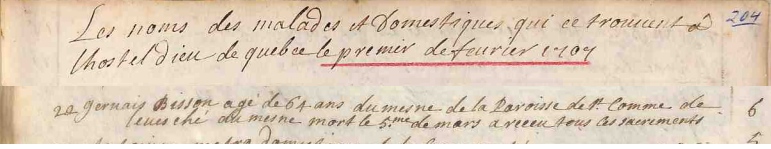 Les noms des malades et Domestiques qui ce trouvent à 204
lhostel dieu de quebec le premir de feurier 1707
28 gervais Bisson agé de 64 ans du mesne de la Paroisse de st Comme de 6
leuesché du mesne mort le 5.me de mars a receu tous les sacrements